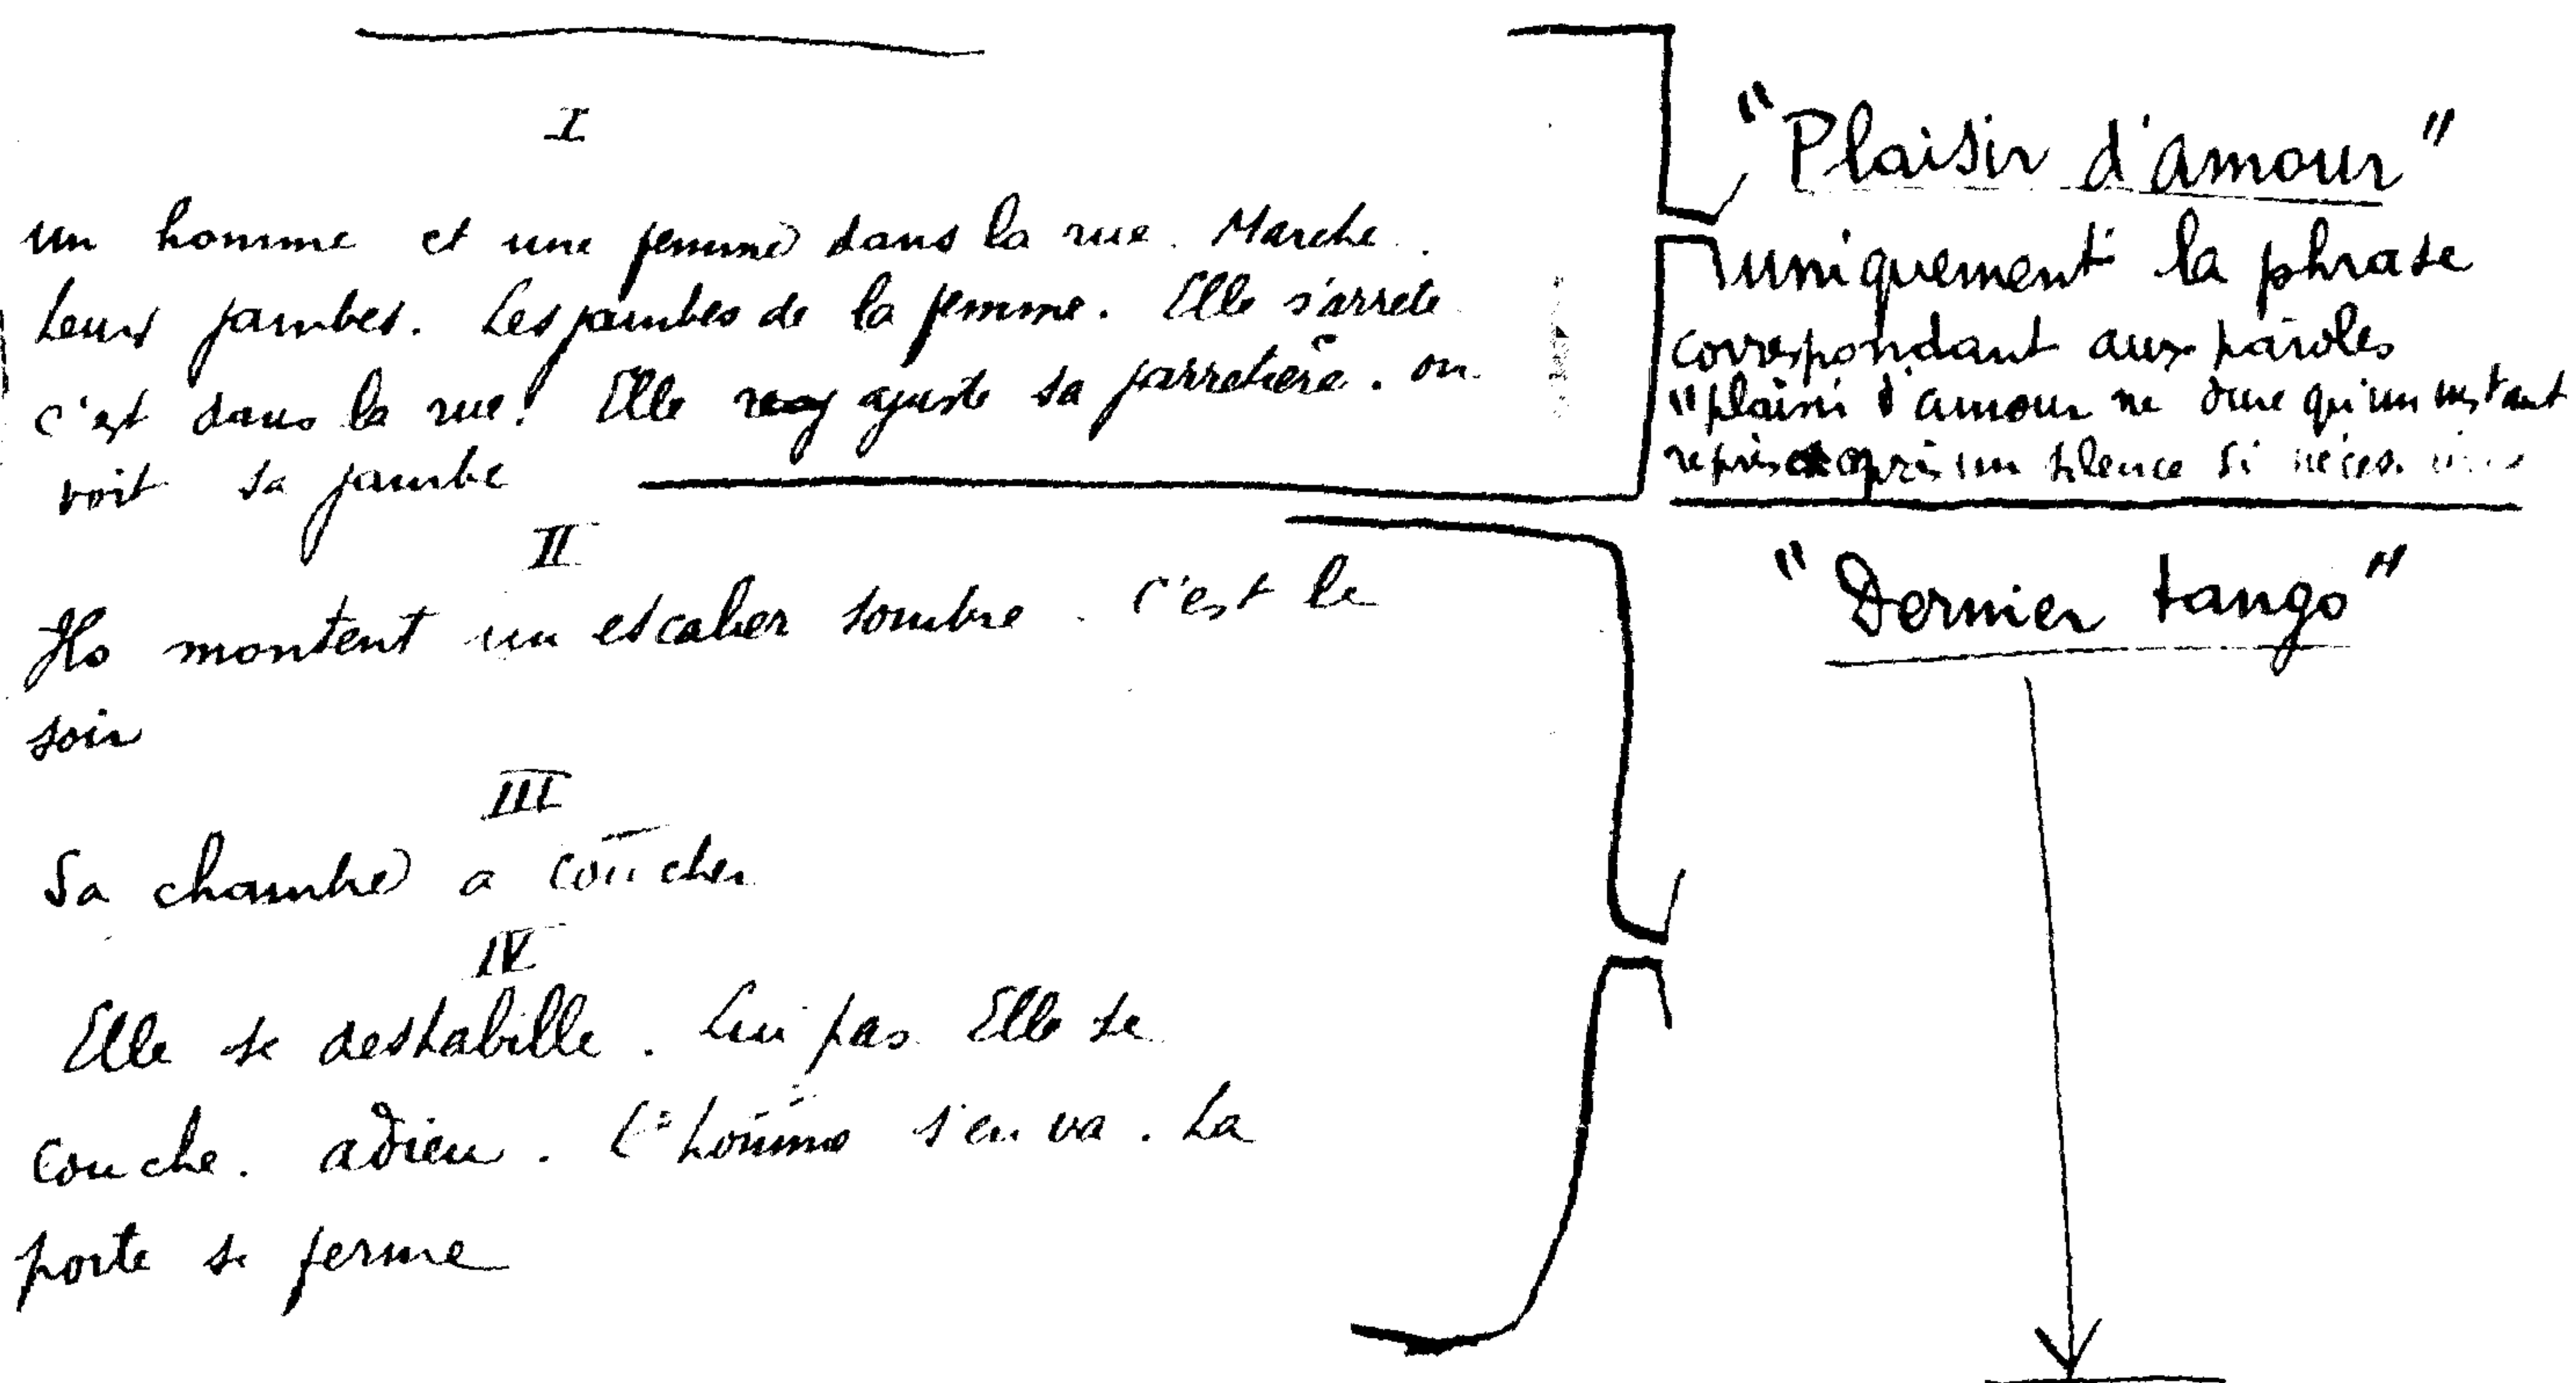 I
un homme et une femme dans la rue. Marche.
Leurs jambes. Les jambes de la femme. Elle s'arrete
c'est dans la rue. Elle ajuste sa jarretière. on
voit sa jambe
II
Ils montent un escalier sombre. C'est le
soir
III
Sa chambre a coucher
IV
Elle se deshabille. Lui pas Elle se
couche. adieu. L'homme s'en va. La
porte se ferme
"Plaisir d'amour"
uniquement la phrase
correspondant aux paroles
"plaisir d'amour ne dure qu'un instant
après un silence si
"Dernier tango"